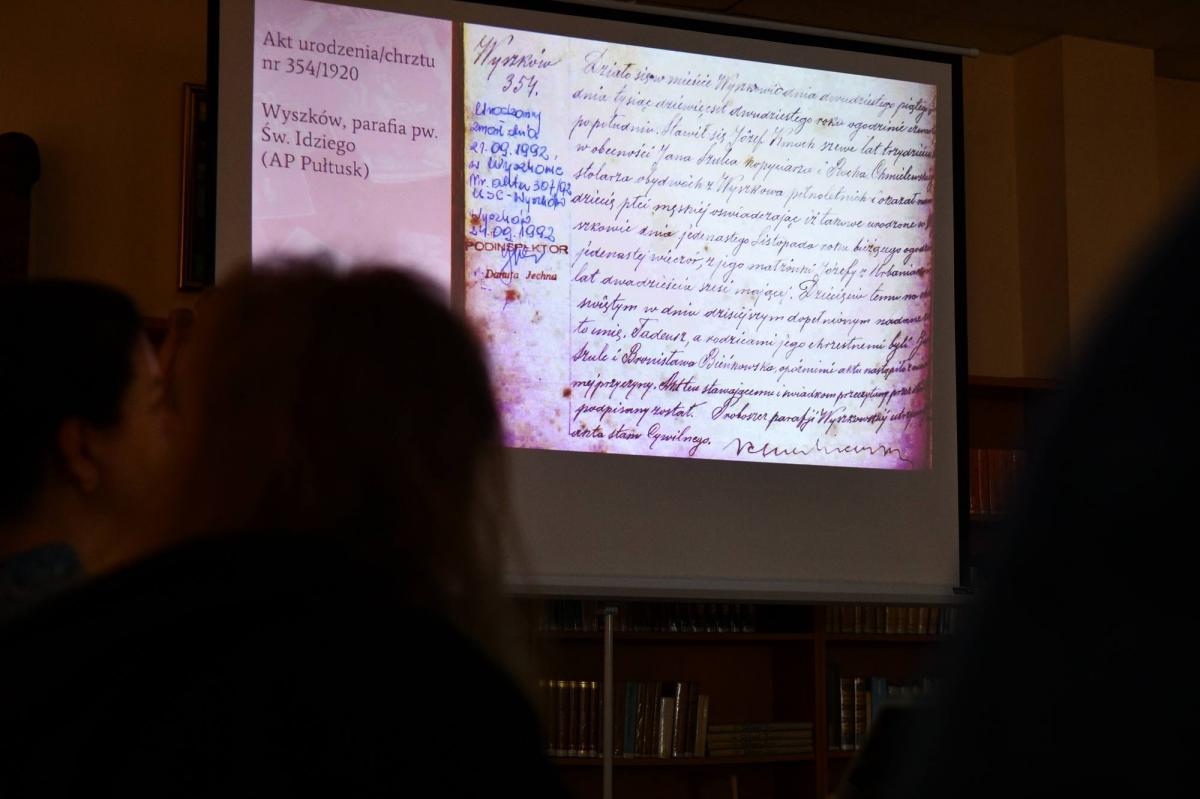 Akt urodzenia/chrztu
nr 354/1920
Wyszków, parafia pw.
Św. Idziego
(AP Pułtusk)
Wyszków
354.
Urodzony
zmarł dnia
21.09.1992,
w Wyszkowie
Nr. aktu 307/92
USC-Wyszków
Wyszków
24.09.1992
PODINSPEKTOR
Danuta Jechna
Działo się w mieście Wyszkowie dnia dwudziestego piątego
dnia tysiąc dziewięćset dwudziestego roku o godzinie
po południu. Stawił się Józef Kmoch szewc lat trzydzieści
w obecności Jana Szulca kopyciarza i Rocha Chmielewskiego
stolarza obydwóch z Wyszkowa pełnoletnich i okazał nam
dziecię płci męskiej oświadczając iż takowe urodzone w
szkowie dnia jedenastego Listopada roku bieżącego o godzi
jedenastej wieczór, z jego małżonki Józefy z Urbania
lat dwadzieścia sześć mającej. Dziecięciu temu na
świętym w dniu dzisiejszym dopełnionym nadane
to imię, Tadeusz, a rodzicami jego chrzestnemi byli
Szulc i Bronisława Bieńkowska, opóźnienie aktu nastąpiło z
mej przyczyny. Akt ten stawającemu i świadkom przeczytany przez
podpisany został. Proboszcz parafji Wyszkowskiej utrzymu
akta stanu Cywilnego.